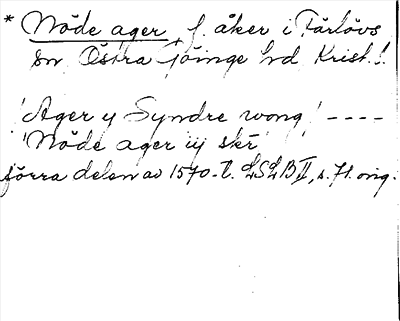 * Nöde ager, f. åker i Färlövs
sn Östra Göinge hd Krist. l.
'Ager y Syndre wong' - - - -
'Nöde ager iij skr'
förra delen av 1570-t. LSLB II, s. 71. orig.